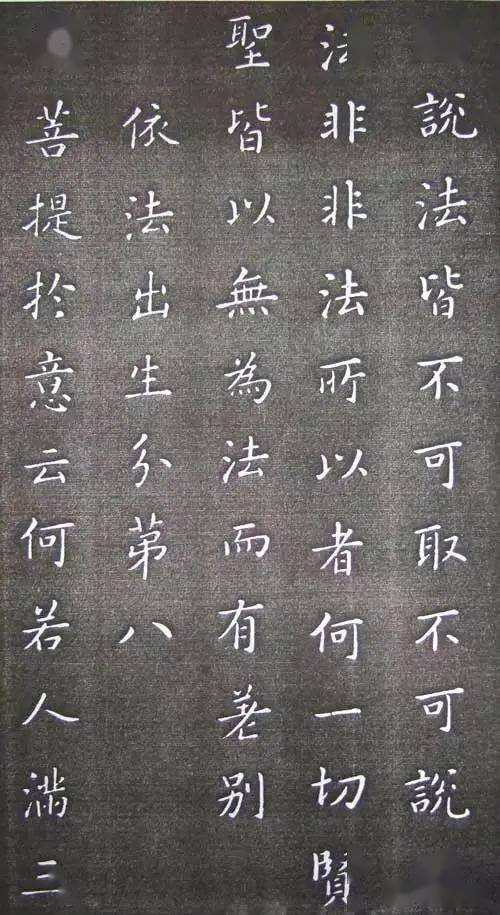 說法皆不可取不可說
非非法所以者何一切賢
聖皆以無為法而有差別
依法出生分苐八
菩提扵意云何若人滿三